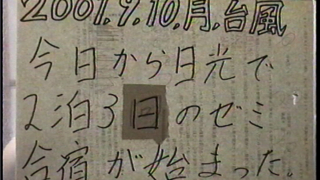 2001.9.10.月.台風
今日から日光で
2泊3日のゼミ
合宿が始まった.